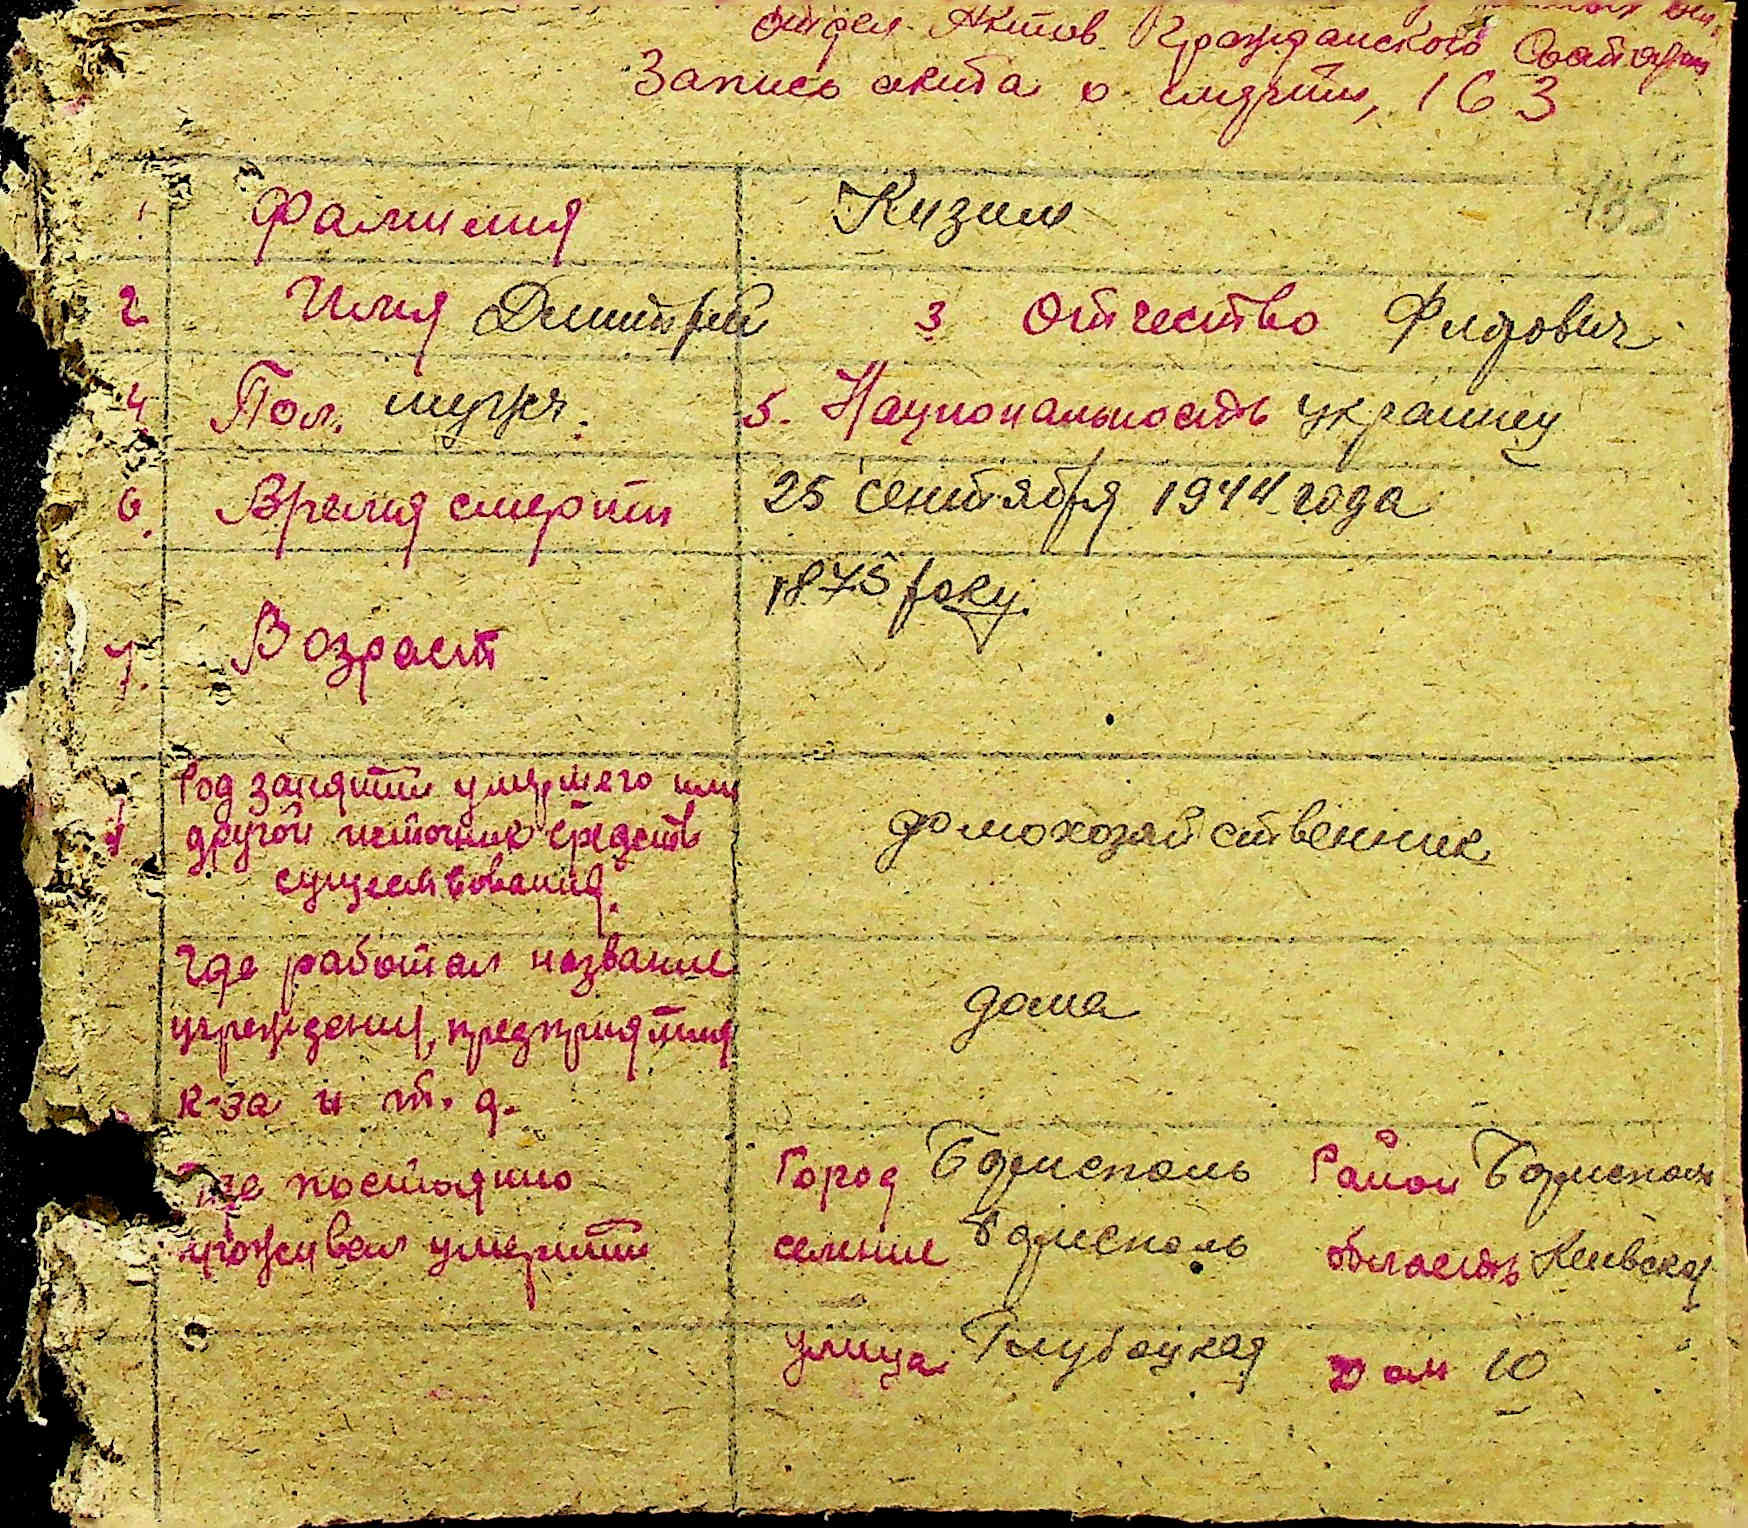 отдел Актов Гражданского Состояния
Запись акта о смерти, 163
185
1. Фамилия Кизим
2. Имя Дмитрий 3 Отчество Федович
4 Пол. мужч. 5. Национальность украинец
6. Время смерти 25 сентября 1944 года
7. Возраст 1875 року.
Род занятий умершего или
другой источник средств
существования.
домохозяйственник
Где работал название
учреждения, предприятия
к-за и т. д.
дома
Где постоянно Город Борисполь Район Борисполь
проживал умерший селение Борисполь область Киевская
улица Глубоцкая дом 10